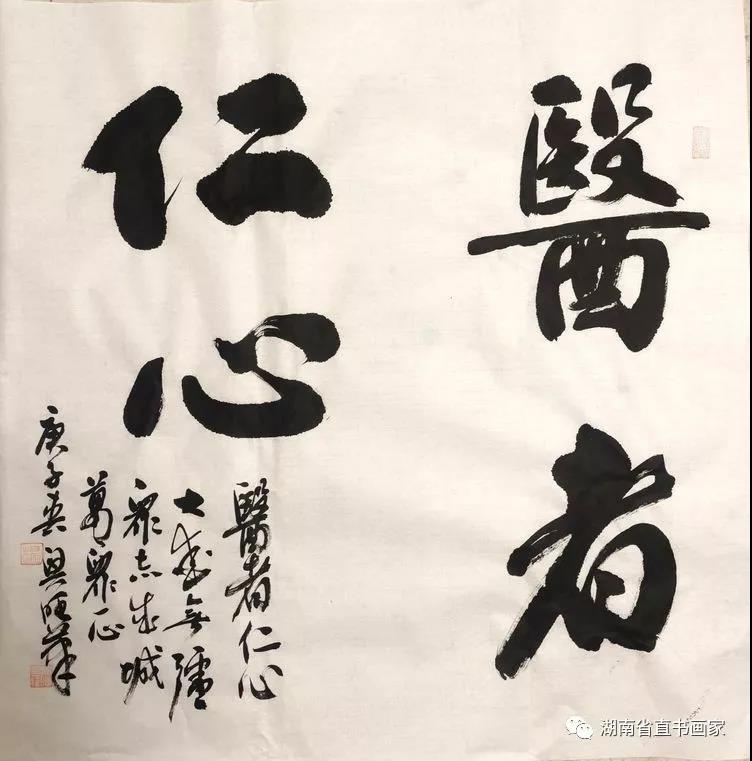 醫者
仁心
醫者仁心
大愛無疆
眾志成城
萬眾一心
庚子春興旺筆
湖南省直书画家